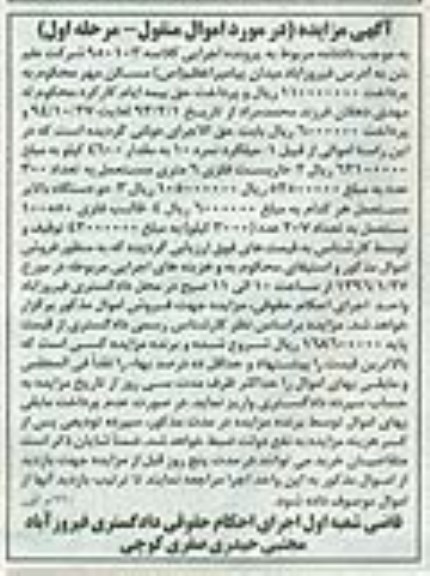 آگهی مزایده (در مورد اموال منقول - مرحله اول)
به موجب دادنامه مربوط به پرونده اجرایی کلاسه ۹۵۰۱۰۳ شرکت
به آدرس فیروزآباد میدان پیامبراعظم(ص) مسکن مهر محکوم به
پرداخت ریال و پرداخت حق بیمه ایام کارکرد محکوم له
فرزند محمدمراد از تاریخ لغایت ۹۴/۱۰/۲۷ و
پرداخت ریال بابت حق الاجرای دولتی گردیده است که در
این راستا اموالی از قبیل ۱. میلگرد نمره ۱۰ به مقدار ۴۶۰۰ کیلو به مبلغ
ریال ۲. فلزی ۶ متری مستعمل به تعداد ۳۰۰
عدد به مبلغ ریال ۳. دو دستگاه بالابر
مستعمل هر کدام به مبلغ ریال ۴. قالب فلزی
مستعمل به تعداد ۲۰۷ عدد (۳۰۰۰ کیلو) به مبلغ توقیف و
توسط کارشناس به قیمت های فوق ارزیابی گردیده که به منظور فروش
اموال مذکور و استیفای محکوم به و هزینه های اجرایی مربوطه در مورخ
۱۳۹۶/۱/۲۷ از ساعت ۱۰ الی ۱۱ صبح در محل دادگستری فیروزآباد
واحد اجرای احکام حقوقی، مزایده جهت فروش اموال مذکور برگزار
خواهد شد. مزایده براساس نظر کارشناس رسمی دادگستری از قیمت
پایه ریال شروع شده و برنده مزایده کسی است که
بالاترین قیمت را پیشنهاد و حداقل ده درصد بهاء را نقداً فی المجلس
و مابقی بهای اموال را حداکثر ظرف مدت سی روز از تاریخ مزایده به
حساب سپرده دادگستری واریز نماید. در صورت عدم پرداخت مابقی
بهای اموال توسط برنده مزایده در مدت مذکور، سپرده تودیعی پس از
کسر هزینه مزایده به نفع دولت ضبط خواهد شد. ضمناً شایان ذکر است
متقاضیان خرید می توانند در مدت پنج روز قبل از مزایده جهت بازدید
از اموال مذکور به این واحد اجرا مراجعه نمایند تا ترتیب بازدید آنها از
اموال موصوف داده شود.
قاضی شعبه اول اجرای احکام حقوقی دادگستری فیروزآباد
مجتبی حیدری صفری کوچی